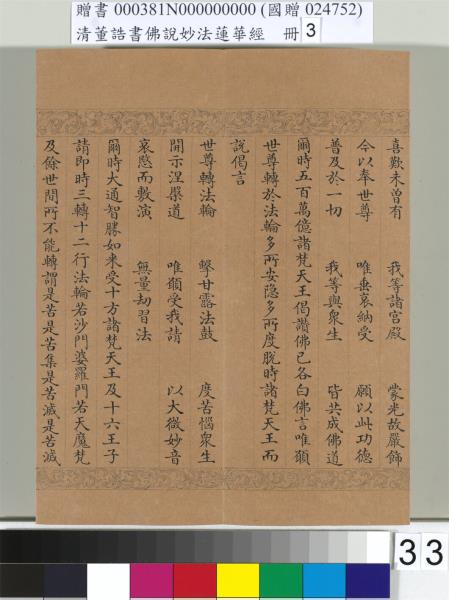 贈書 000381N000000000 (國贈 024752)
清董誥書佛說妙法蓮華經 冊 3
喜歎未曾有 我等諸宮殿 蒙光故嚴飾
今以奉世尊 唯垂哀納受 願以此功德
普及於一切 我等與眾生 皆共成佛道
爾時五百萬億諸梵天王偈讚佛已各白佛言唯願
世尊轉於法輪多所安隱多所度脫時諸梵天王而
說偈言
世尊轉法輪 擊甘露法鼓 度苦惱眾生
開示涅槃道 唯願受我請 以大微妙音
哀愍而敷演 無量劫習法
爾時大通智勝如來受十方諸梵天王及十六王子
請即時三轉十二行法輪若沙門婆羅門若天魔梵
及餘世間所不能轉謂是苦是苦集是苦滅是苦滅
33